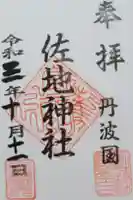 奉拝
丹波國
佐地神社
令和三年十月十一日